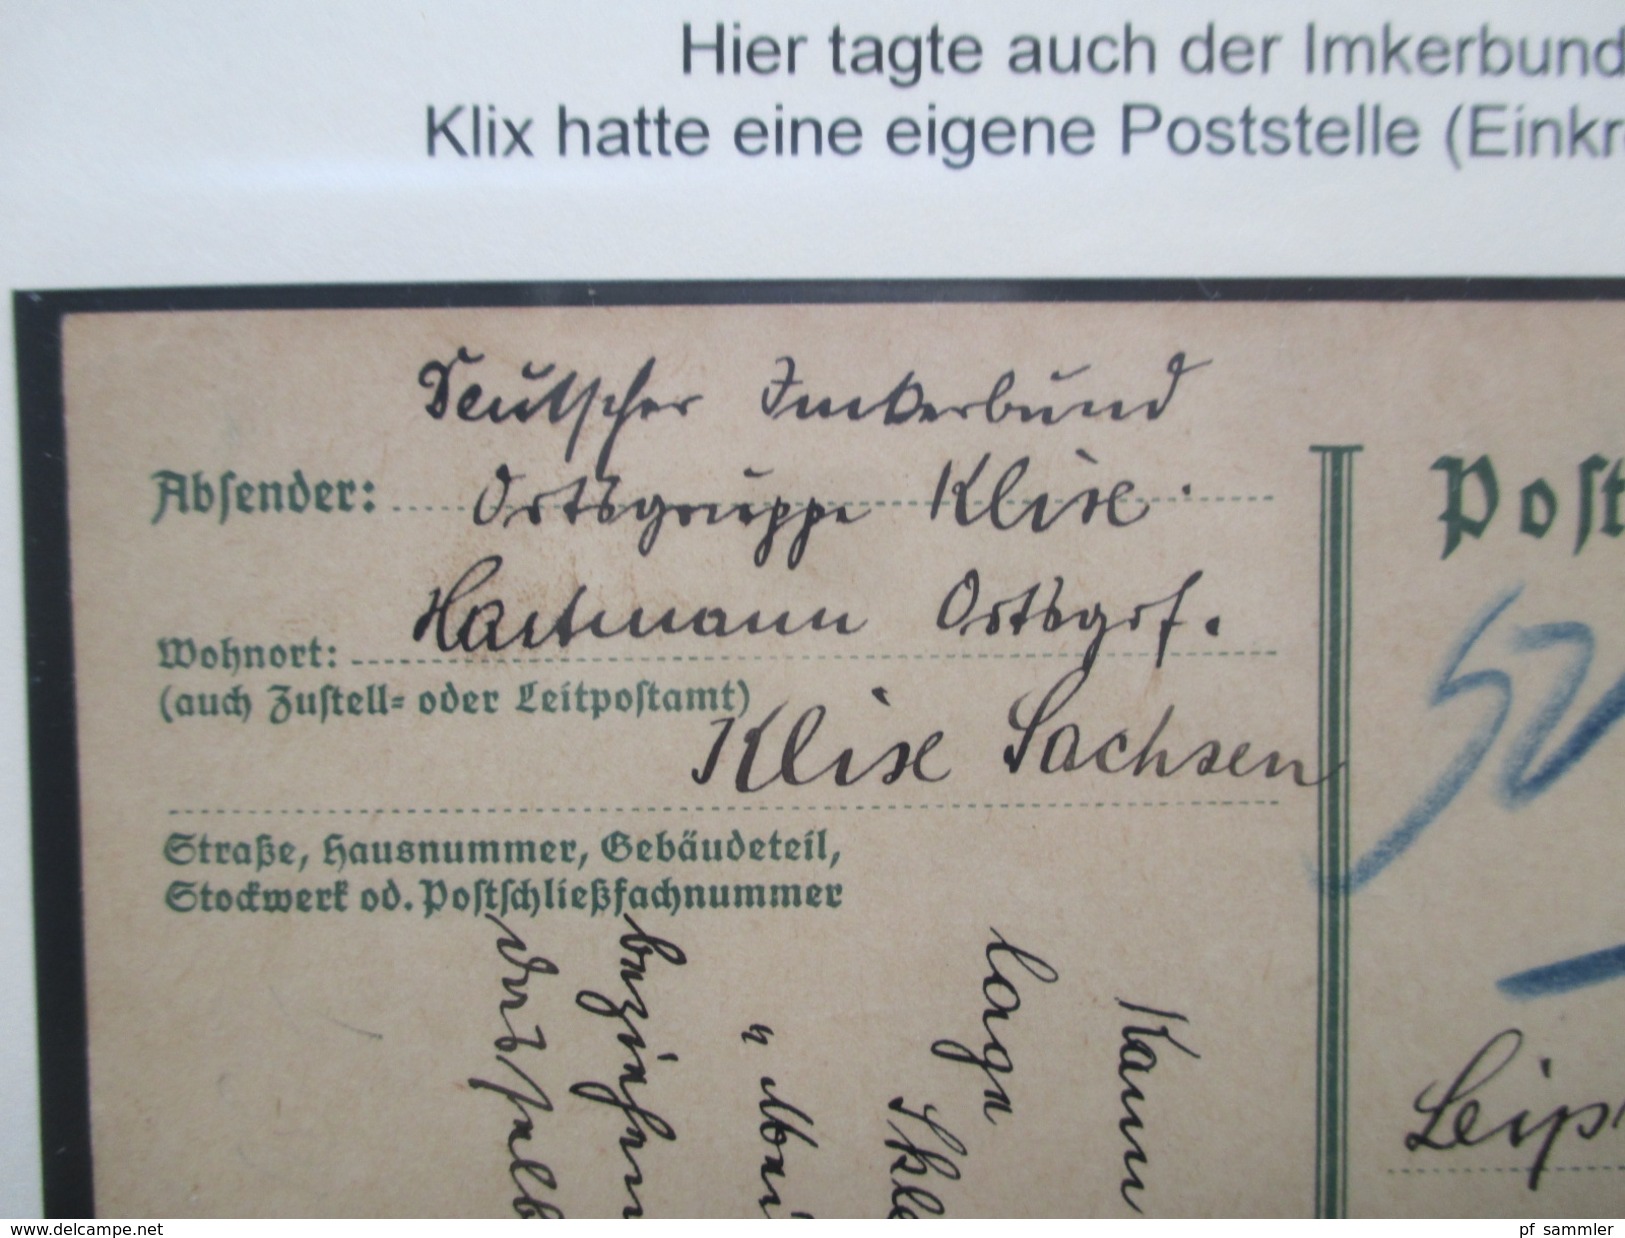 Hier tagte auch der Imkerbund
Klix hatte eine eigene Poststelle (Einkr
Deutscher Imkerbund
Absender: Ortsgruppe Klix.
Hartmann Ortsgrf.
Wohnort:
(auch Zustell- oder Leitpostamt)
Klix Sachsen
Straße, Hausnummer, Gebäudeteil,
Stockwerk od. Postschließfachnummer
Post
Leip
Kann
Lage
beziehen
www.delcampe.net
pf_sammler